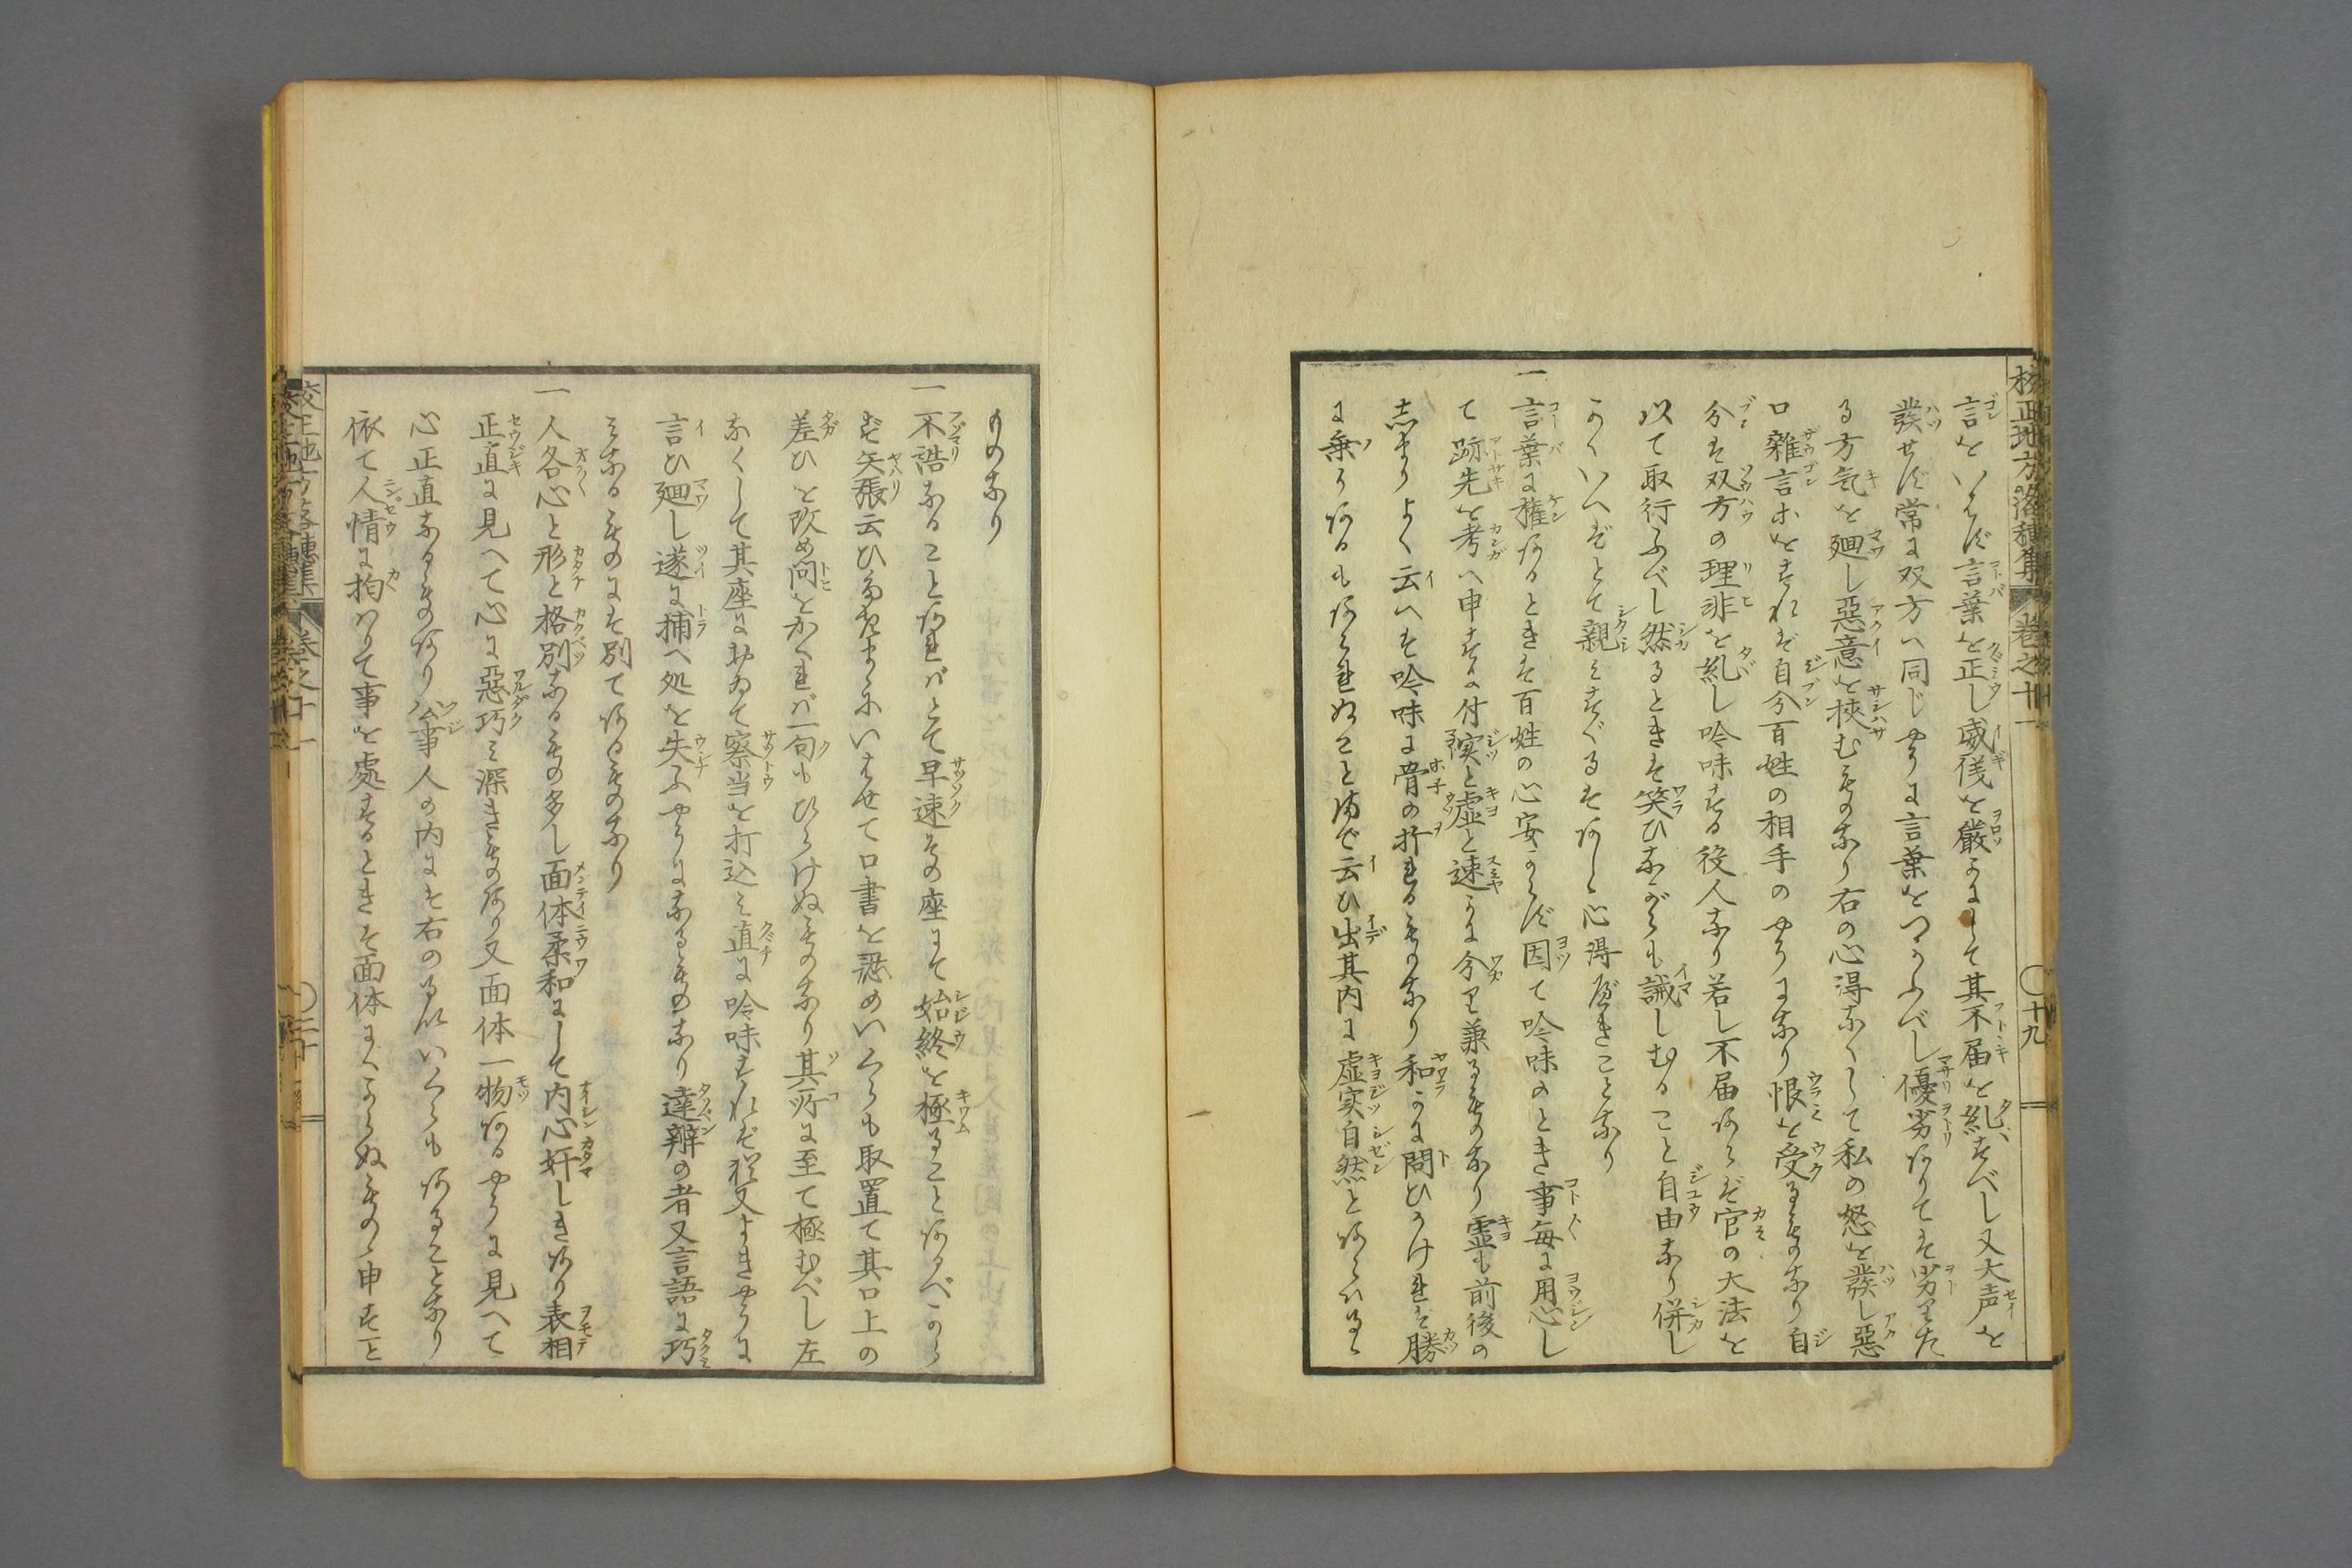 校正地方落穂集 巻之十一 〇十九
言をいはず言葉を正し威儀を厳かにして其不届を糺すべし又大声を
発せず常に双方へ同じやうに言葉をつかふべし優劣ありては劣りた
る方気を廻し悪意を挟むものなり右の心得なくして私の怒を発し悪
口雑言等をすれば自分百姓の相手のやうになり恨を受るものなり自
分は双方の理非を糺し吟味する役人なり若し不届あらば官の大法を
以て取行ふべし然るときは笑ひながらも誡しむること自由なり併し
かくいへばとて親みすぐるはあしく心得べきことなり
一言葉に権あるときは百姓の心安からず因て吟味のとき事毎に用心し
て跡先を考へ申すに付実と虚と速かに分り兼るものなり霊も前後の
志まりよく云へは吟味に骨の折れるものなり和かに問ひかけれは勝
に乗りあるもあられぬことまで云ひ出其内に虚実自然とあらはるゝ
ものなり
一不誥なることあればとて早速その座にて始終を極ることあるべから
ず矢張云ひ
いはせて口書を認めいくらも取置て其口上の
差ひを改め問をかくれば一句もひらけぬものなり其所に至て極むべし左
なくして其座におゐて察当を打込み直に吟味すれば猶又よきやうに
言ひ廻し遂に捕へ処を失ふやうになるものなり達辨の者又言語に巧
みなるものには別てあるものなり
一人各心と形と格別なるもの多し面体柔和にして内心奸しきあり表相
正直に見へて心に悪巧み深きものあり又面体一物あるやうに見へて
心正直なるものあり公事人の内には右のるいいくらもあることなり
依て人情に拘はりて事を処するときは面体によらぬもの申すこと
校正地方落穂集 巻之十一 〇二十